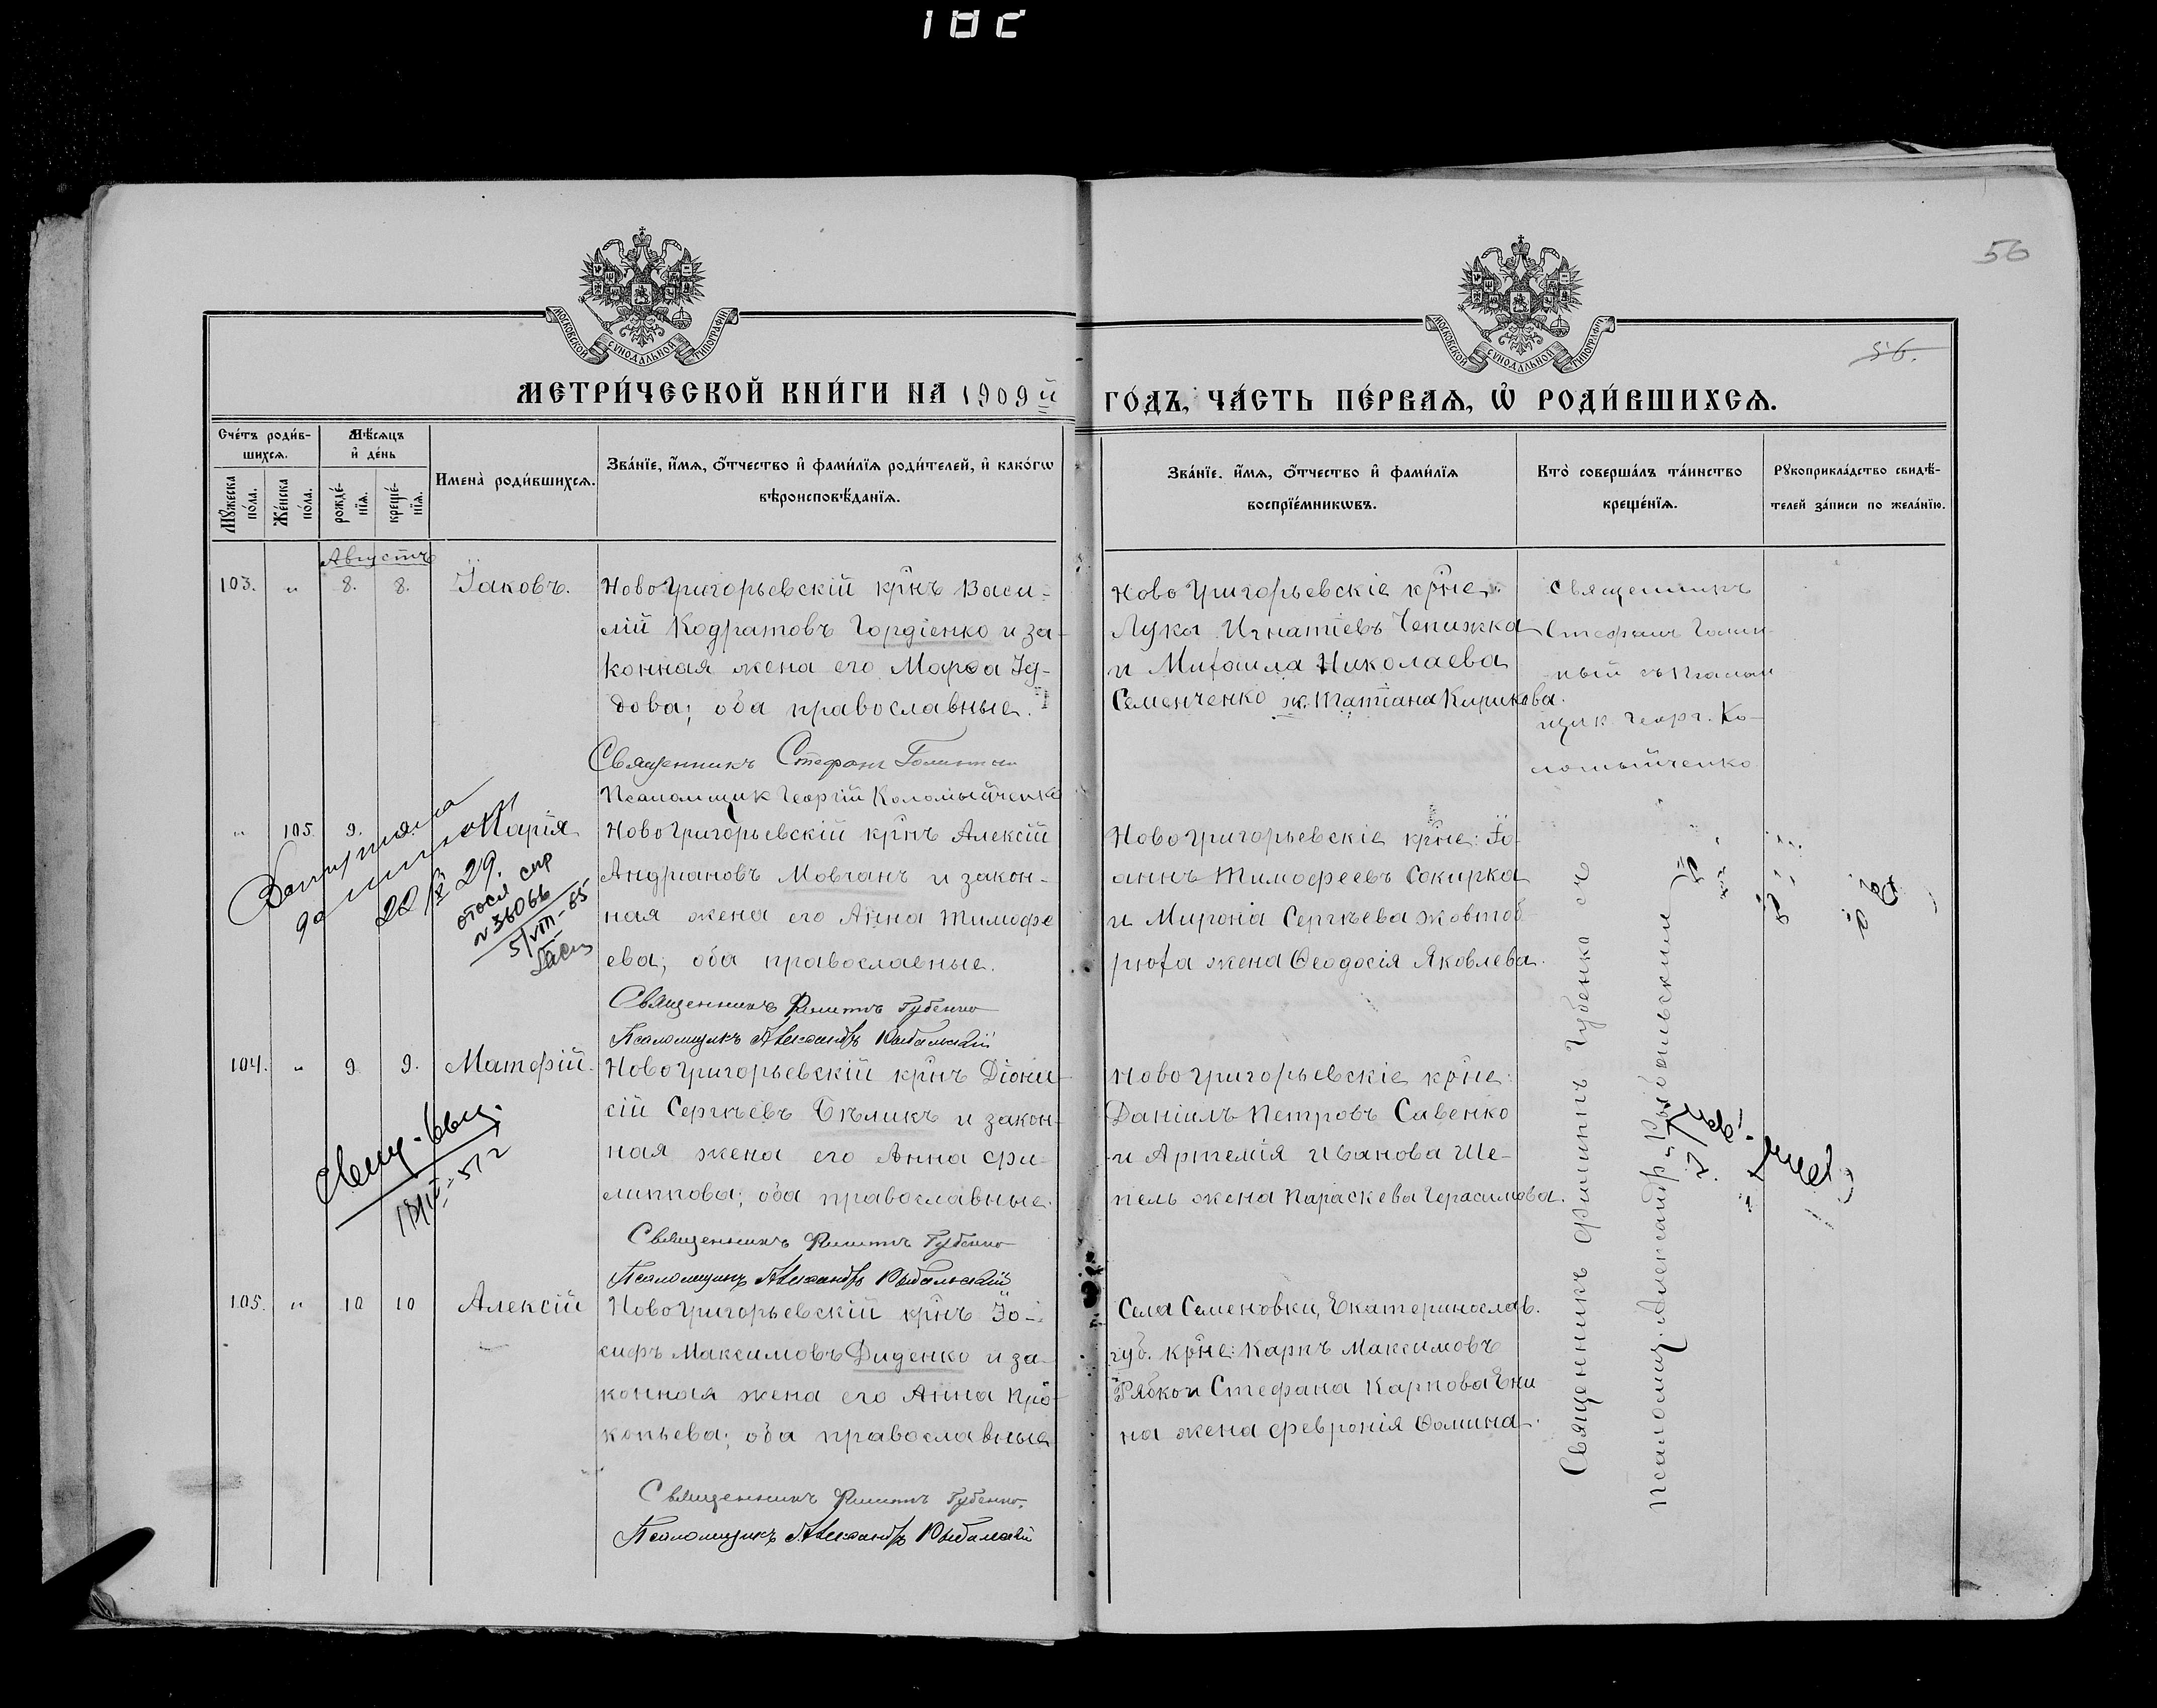 182
56
56.
МОСКОВСКОЙ СѴНОДАЛЬНОЙ ТИПОГРАФІИ
МОСКОВСКОЙ СѴНОДАЛЬНОЙ ТИПОГРАФІИ
МЕТРИ́ЧЕСКОЙ КНИ́ГИ НА 1909й ГО́ДЪ, ЧА́СТЬ ПЕ́РВАѦ, Ѡ҆ РОДИ́ВШИХСѦ.
Сче́тъ роди́в-
шихсѧ.
Мꙋ́жеска
по́ла.
Же́нска
по́ла.
Мѣ́сѧцъ
и҆ де́нь
рожде́-
нїѧ.
креще́-
нїѧ.
Имена̀ роди́вшихсѧ.
Зва́нїе, и҆́мѧ, ѻ҆́тчество и҆ фами́лїѧ роди́телей, и҆ како́гѡ
вѣроисповѣ́данїѧ.
Зва́нїе. и҆́мѧ, ѻ҆́тчество и҆ фами́лїѧ
воспрїе́мникѡвъ.
Кто̀ соверша́лъ та́инство
креще́нїѧ.
Рꙋкоприкла́дство свидѣ́-
телей за́писи по жела́нїю.
Августъ
103. " 8. 8. Іаковъ.
Новогригорьевскій крнъ Васи-
лій Кодратовъ Гордіенко и за-
конная жена его Марѳа Іу-
дова; оба православные.
Священникъ Стефанъ
Псаломщик Георгій Коломыйченко
Новогригорьевскіе крне.
Лука Игнатіевъ Чепижка
и Михаила Николаева
Семенченко ж. Татіана Кирикова.
Священникъ
Стефанъ Голин-
ный съ псалом
щик. Георг. Ко-
ломыйченко
" 105. 9. Марія
22/X 29.
N 36066
5/VIII-65
Новогригорьевскій крнъ Алексій
Андріановъ Мовчанъ и закон-
ная жена его Анна Тимофе
ева; оба православные.
Священникъ Филиппъ Губенко
Псаломщикъ Александръ Рыбальскій
Новогригорьевскіе крне: Іо-
аннъ Тимофеевъ Сокирка
и Мирона Сергѣева Жовтоб-
рюха жена Ѳеодосія Яковлева.
104. " 9. 9. Матфій.
Новогригорьевскій крнъ Діони-
сій Сергѣевъ Бѣликъ и закон-
ная жена его Анна Фи-
липпова; оба православные.
Священникъ Филиппъ Губенко
Псаломщикъ Александръ Рыбальскій
Новогригорьевскіе крне:
Даніилъ Петровъ Савенко
и Артемія Иванова Ше-
пель жена Параскева Герасимова.
105. " 10 10 Алексій
Новогригорьевскій крнъ Іо-
сифъ Максимовъ Диденко и за-
конная жена его Анна Про-
копьева; оба православные
Священникъ Филиппъ Губенко.
Псаломщикъ Александръ Рыбальскій
Села Семеновки, Екатеринослав.
губ. крне: Карпъ Максимовъ
Рябко и Стефана Карпова Ени
на жена Февронія Ѳомина.
Священникъ Филиппъ Губенко съ
псаломщ. Александр. Рыбальскимъ